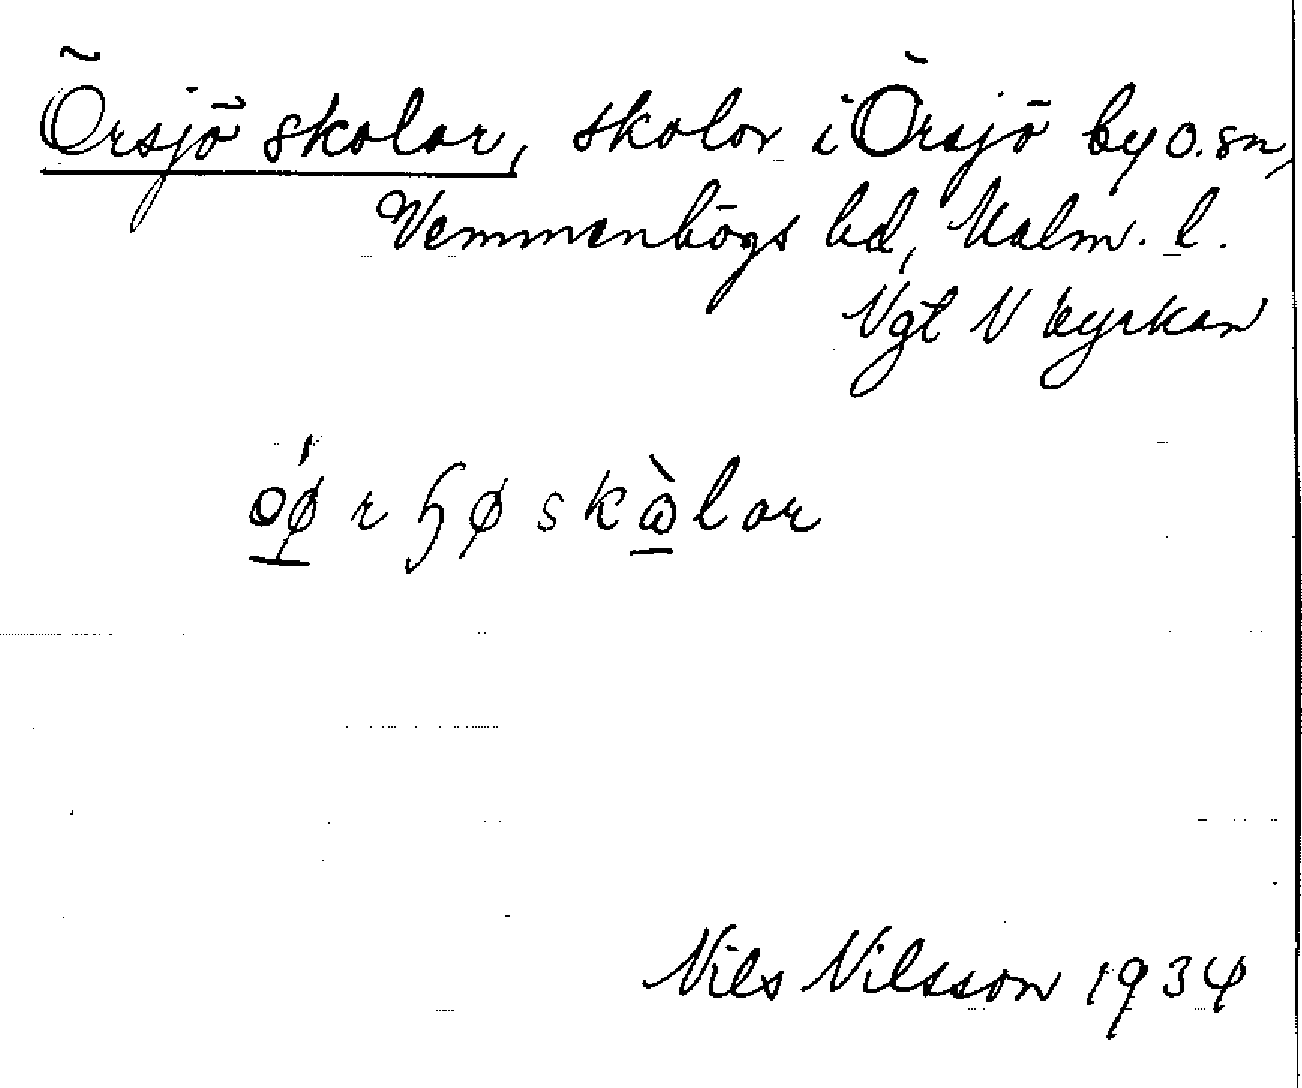 Örsjö skolor, skolor i Örsjö by o. sn,
Vemmenhögs hd, Malm. l.
Vgt N kyrkan
oǿ r ɧ ø s k ὼ l or
Nils Nilsson 1934